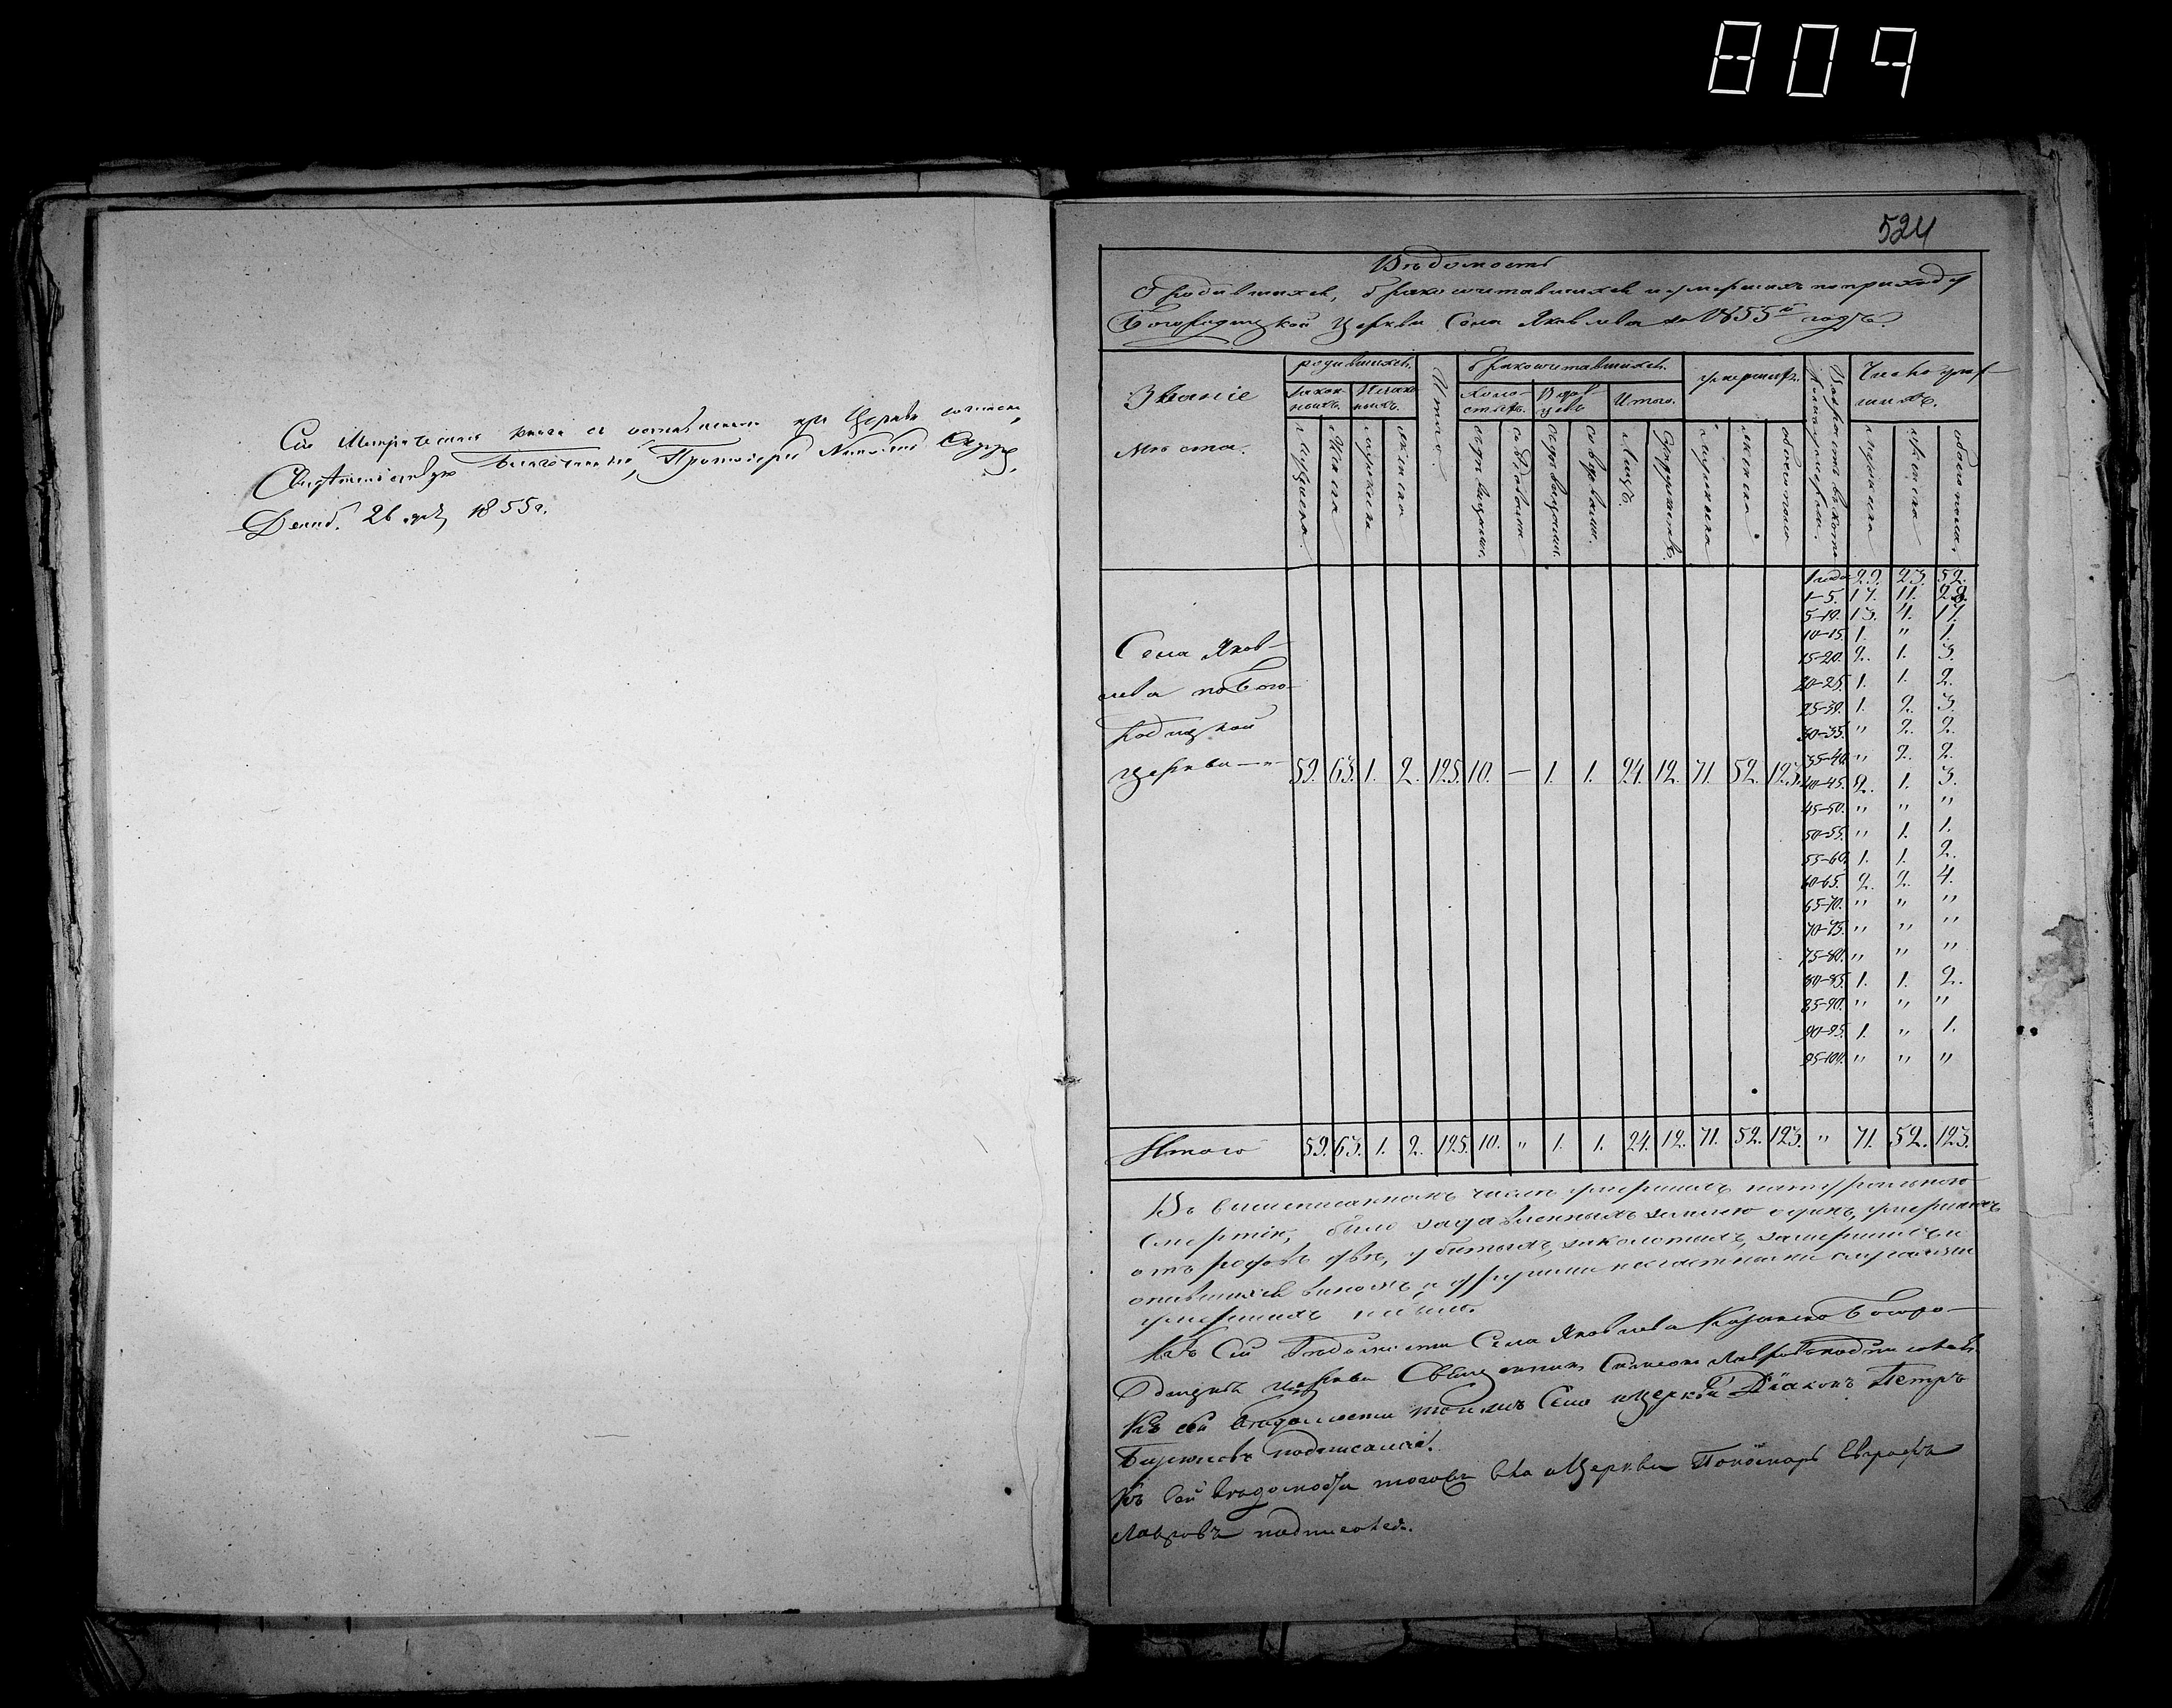 809
Сія Метрическая книга съ оставленною при Церкви согласна
Свидѣтельствую Благочинный, Протоіерей
Декаб. 26 дня, 1855 г.
524
Вѣдомость
О родившихся, бракосочетавшихся и умершихъ по приходу
Богородицкой Церкви Села Яковлева за 1855й годъ.
Званіе
мѣста.
родившихся.
закон-
ныхъ.
Незако-
ныхъ.
Итого.
бракосочетавшихся.
Холо-
стыхъ.
Вдов-
цевъ
Итого.
умершихъ.
Число умер-
шихъ.
мужеска.
женска
мужеска
женска
съ дѣвицами.
со вдовами
съ дѣвицами.
со вдовами.
Лицъ.
Супружествъ.
мужеска
женска
обоего пола
мужеска
женска
обоего пола.
1 года 29. 23. 52.
1-5. 17. 11. 28.
5-10. 13. 4. 17.
10-15. 1. " 1.
15-20. 2. 1. 3.
20-25. 1. 1. 2.
25-30. 1. 2. 3.
30-35. " 2. 2.
35-40. " 2. 2.
40-45. 2. 1. 3.
45-50. " " "
50-55. " 1. 1.
55-60. 1. 1. 2.
60-65. 2. 2. 4.
65-70. " " "
70-75. " " "
75-80. " " "
80-85. 1. 1. 2.
85-90. " " "
90-95. 1. " 1.
95-100. " " "
Села Яков-
лева по Бого-
родицкой
церкви 59. 63. 1. 2. 125. 10. — 1. 1. 24. 12. 71. 52. 123.
Итого 59. 63. 1. 2. 125. 10. " 1. 1. 24. 12. 71. 52. 123. " 71. 52. 123.
Въ вышеписанномъ числѣ умершихъ натуральною
смертію, было задавленныхъ землею одинъ, умершихъ
отъ родовъ двѣ, убитыхъ, заколотыхъ, замерзшихъ и
опившихся виномъ и другими несчастными случаями
умершихъ не было.
Къ сей Вѣдомости Села Яковлева Казанско Богоро-
дицкой церкви Священникъ Симеонъ Лавровъ подписался.
Къ сей вѣдомости тогожъ Села и Церкви Діаконъ Петръ
подписался.
Къ сей вѣдомости тогожъ села и Церкви Пономарь Евграфъ
Лавровъ подписался.